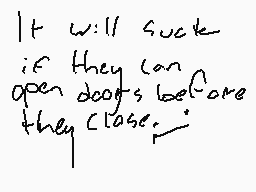 It will suck
if they can
open doors before
they close.